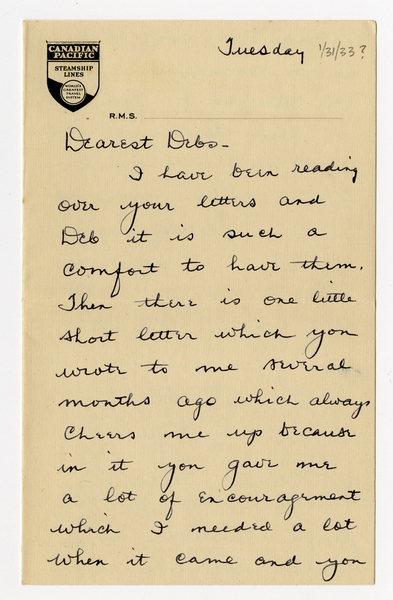 CANADIAN
PACIFIC
STEAMSHIP
LINES
WORLD'S
GREATEST
TRAVEL
SYSTEM
Tuesday 1/31/33?
R.M.S.
Dearest Debs -
I have been reading
over your letters and
Deb it is such a
comfort to have them.
Then there is one little
short letter which you
wrote to me several
months ago which always
cheers me up because
in it you gave me
a lot of encouragement
which I needed a lot
when it came and you